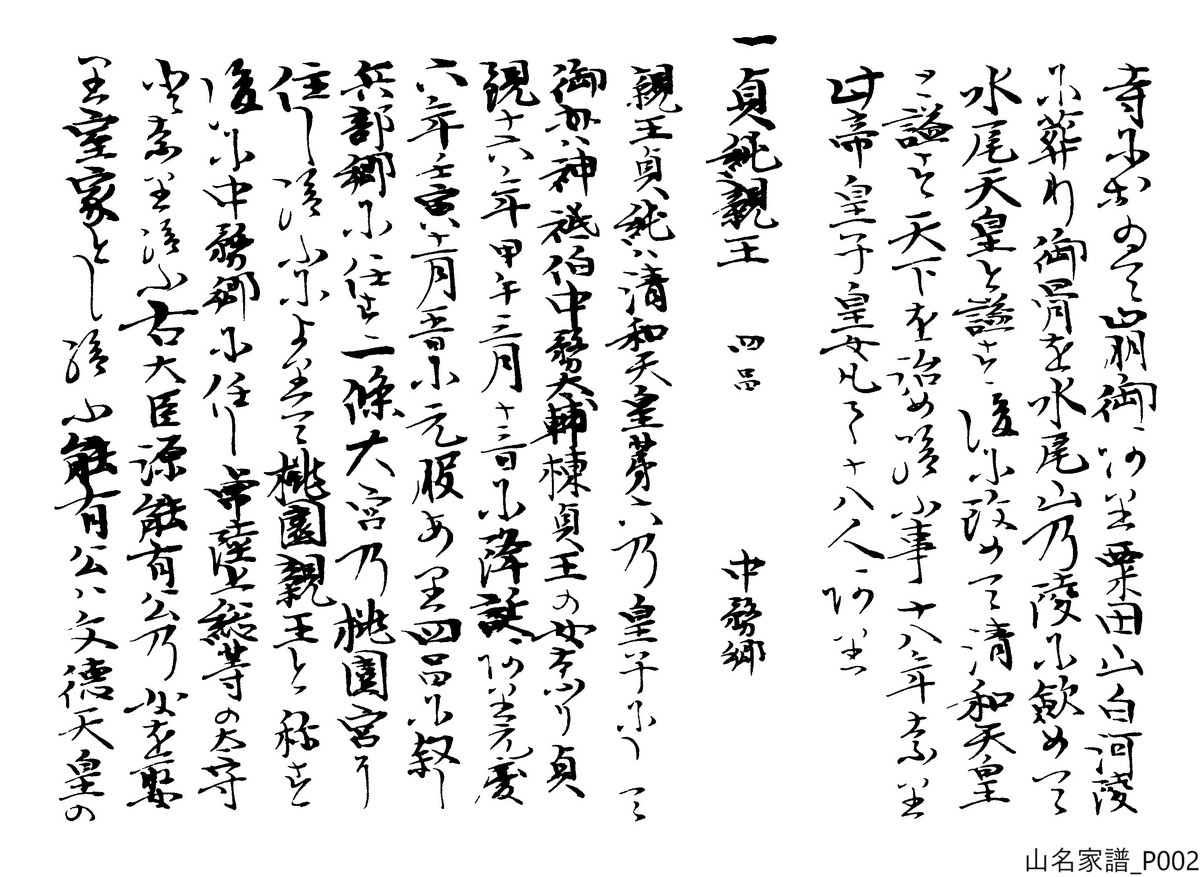 寺におゐて崩御ありて粟田山白河陵
に葬り御骨を水尾山乃陵に歛めて
水尾天皇と謚す後に改めて清和天皇
と謚す天下を治め給ふ事十八年なり
此帝皇子皇女凡て十八人あり
一貞純親王 四品 中務卿
親王貞純ハ清和天皇第六乃皇子にして
御母ハ神祇伯中務大輔棟貞王の女なり貞
観十六年甲午三月十三日に降誕あり元慶
六年壬寅十二月五日に元服あり四品に叙し
兵部卿に任す二條大宮乃桃園宮に
住し給ふによりて桃園親王と称す
後に中務卿に任し常陸上総等の太守
となり給ふ右大臣源能有公乃女を娶
り室家とし給ふ能有公ハ文徳天皇の
山名家譜_P002